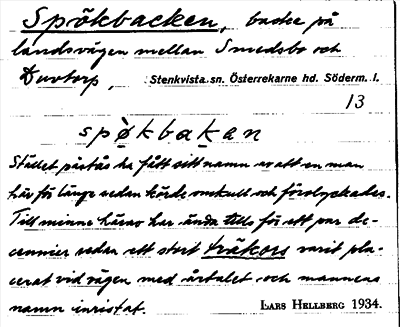 Spökbacken, backe på
landsvägen mellan Smedsbo och
Duvtorp, Stenkvista sn. Österrekarne hd. Söderm. l.
13
spø̀kbak̬an
Stället påstås ha fått sitt namn av att en man
här för länge sedan körde omkull och förolyckades.
Till minne härav har ända tills för ett par de-
cennier sedan ett stort träkors varit pla-
cerat vid vägen med årtalet och mannens
namn inristat. LARS HELLBERG 1934.